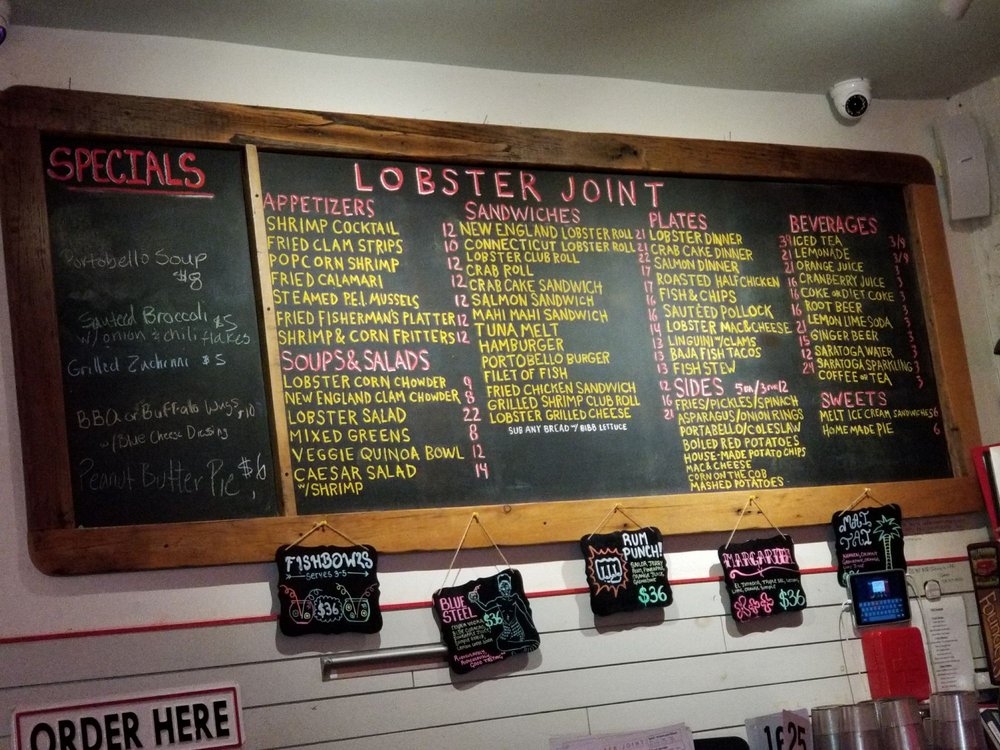 SPECIALS
Portobello Soup
$8
Sauteed Broccoli $5
w/ onions & chili flakes
Grilled Zuchinni $5
BBQ or Buffalo Wings $10
w/ Blue Cheese Dressing
Peanut Butter Pie $6
LOBSTER JOINT
APPETIZERS
SHRIMP COCKTAIL 12
FRIED CLAM STRIPS 10
POPCORN SHRIMP 12
FRIED CALAMARI 12
STEAMED P.E.I. MUSSELS 12
FRIED FISHERMAN'S PLATTER
SHRIMP & CORN FRITTERS 12
SOUPS & SALADS
LOBSTER CORN CHOWDER 9
NEW ENGLAND CLAM CHOWDER 8
LOBSTER SALAD 22
MIXED GREENS 8
VEGGIE QUINOA BOWL 12
CAESAR SALAD 14
W/SHRIMP
SANDWICHES
NEW ENGLAND LOBSTER ROLL 21
CONNECTICUT LOBSTER ROLL 21
LOBSTER CLUB ROLL 22
CRAB ROLL 17
CRAB CAKE SANDWICH 16
SALMON SANDWICH 16
MAHI MAHI SANDWICH 16
TUNA MELT 14
HAMBURGER 13
PORTOBELLO BURGER 13
FILET OF FISH 13
FRIED CHICKEN SANDWICH 12
GRILLED SHRIMP CLUB ROLL 16
LOBSTER GRILLED CHEESE 21
SUB ANY BREAD W/ BIBB LETTUCE
PLATES
LOBSTER DINNER
CRAB CAKE DINNER 21
SALMON DINNER 21
ROASTED HALF CHICKEN 16
FISH & CHIPS 16
SAUTÉED POLLOCK 16
LOBSTER MAC & CHEESE 21
LINGUINI W/CLAMS 15
BAJA FISH TACOS 12
FISH STEW 24
SIDES 5 EA/3 FOR 12
FRIES/PICKLES/SPINACH
ASPARAGUS/ONION RINGS
PORTABELLO/COLESLAW
BOILED RED POTATOES
HOUSE-MADE POTATO CHIPS
MAC & CHEESE
CORN ON THE COB
MASHED POTATOES
BEVERAGES
ICED TEA
LEMONADE
ORANGE JUICE 3
CRANBERRY JUICE 3
COKE OR DIET COKE 3
ROOT BEER 3
LEMON LIME SODA 3
GINGER BEER 3
SARATOGA WATER 3
SARATOGA SPARKLING 3
COFFEE OR TEA 3
SWEETS
MELT ICE CREAM SANDWICHES 6
HOMEMADE PIE 6
FISHBOWLS
SERVES 3-5
$36
BLUE STEEL
$36
RUM PUNCH!
SAILOR JERRY
RUM, PINEAPPLE,
ORANGE JUICE
GRENADINE
$36
MARGARITA
$36
MAI TAI
ORDER HERE